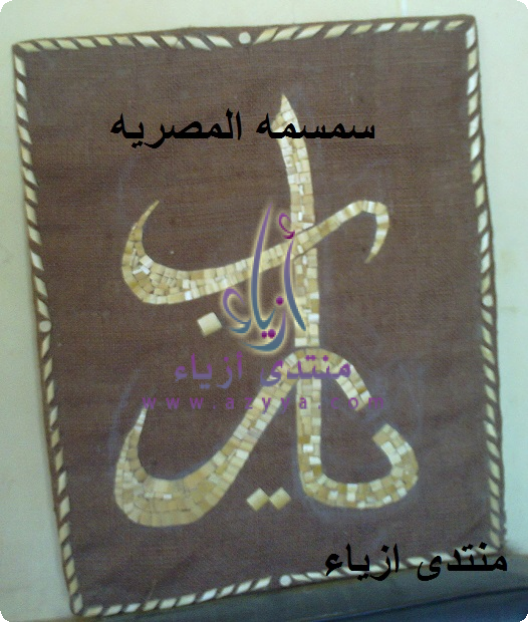 سمسمه المصريه
يا رب
أزياء
منتدى أزياء
www.azyya.com
منتدى ازياء